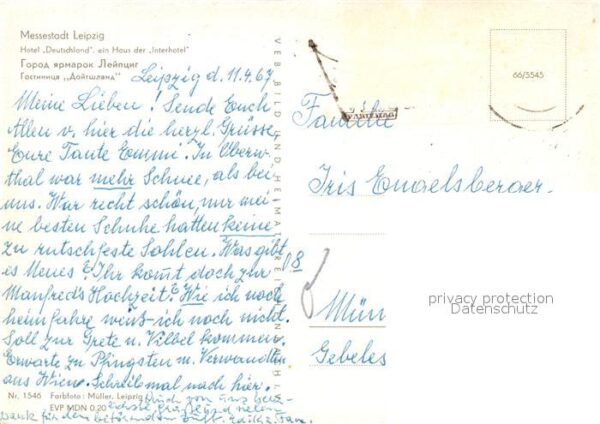 Messestadt Leipzig
Hotel „Deutschland", ein Haus der „Interhotel"
Город ярмарок Лейпциг
Гостиница „Дойтшланд"
Leipzig d. 11.4.67
Meine Lieben! Sende Euch
Allen v. hier die herzl. Grüsse,
Eure Tante Emmi. In Oberw-
thal war mehr Schnee, als bei
uns. War recht schön, nur mei-
ne besten Schuhe hatten keine
zu rutschfeste Sohlen. Was gibt
es Neues? Ihr komt doch zur
Manfred's Hochzeit? Wie ich nach
heimfahre weiss ich noch nicht.
Soll zur Grete n. Vilbel kommen.
Erwarte zu Pfingsten m. Verwandten
aus Wien. Schreib mal nach hier.
Auch von uns herz-
lichste Grüße und vielen
Dank für den
Nr. 1546 Farbfoto: Müller, Leipzig
EVP MDN 0,20
VEB BILD UND HEIMAT
66/5545
Familie
Iris Engelsberger
08
Mün
Gebeles
privacy protection
Datenschutz